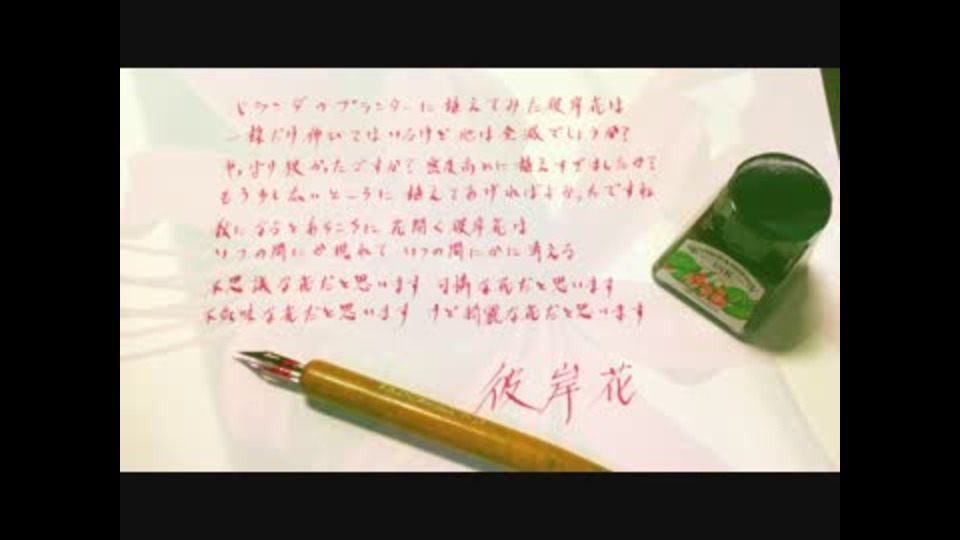 ベランダのプランターに植えてみた彼岸花は
一株だけ伸びてはいるけど他は全滅でしょうか?
やっぱり狭かったですか?密度高めに植えすぎましたか?
もう少し広いところに植えてあげればよかったんですね
秋になるとあちこちに花開く彼岸花は
いつの間にか現れていつの間にかに消える
不思議な花だと思います 可憐な花だと思います
不気味な花だと思います けど綺麗な花だと思います
彼岸花